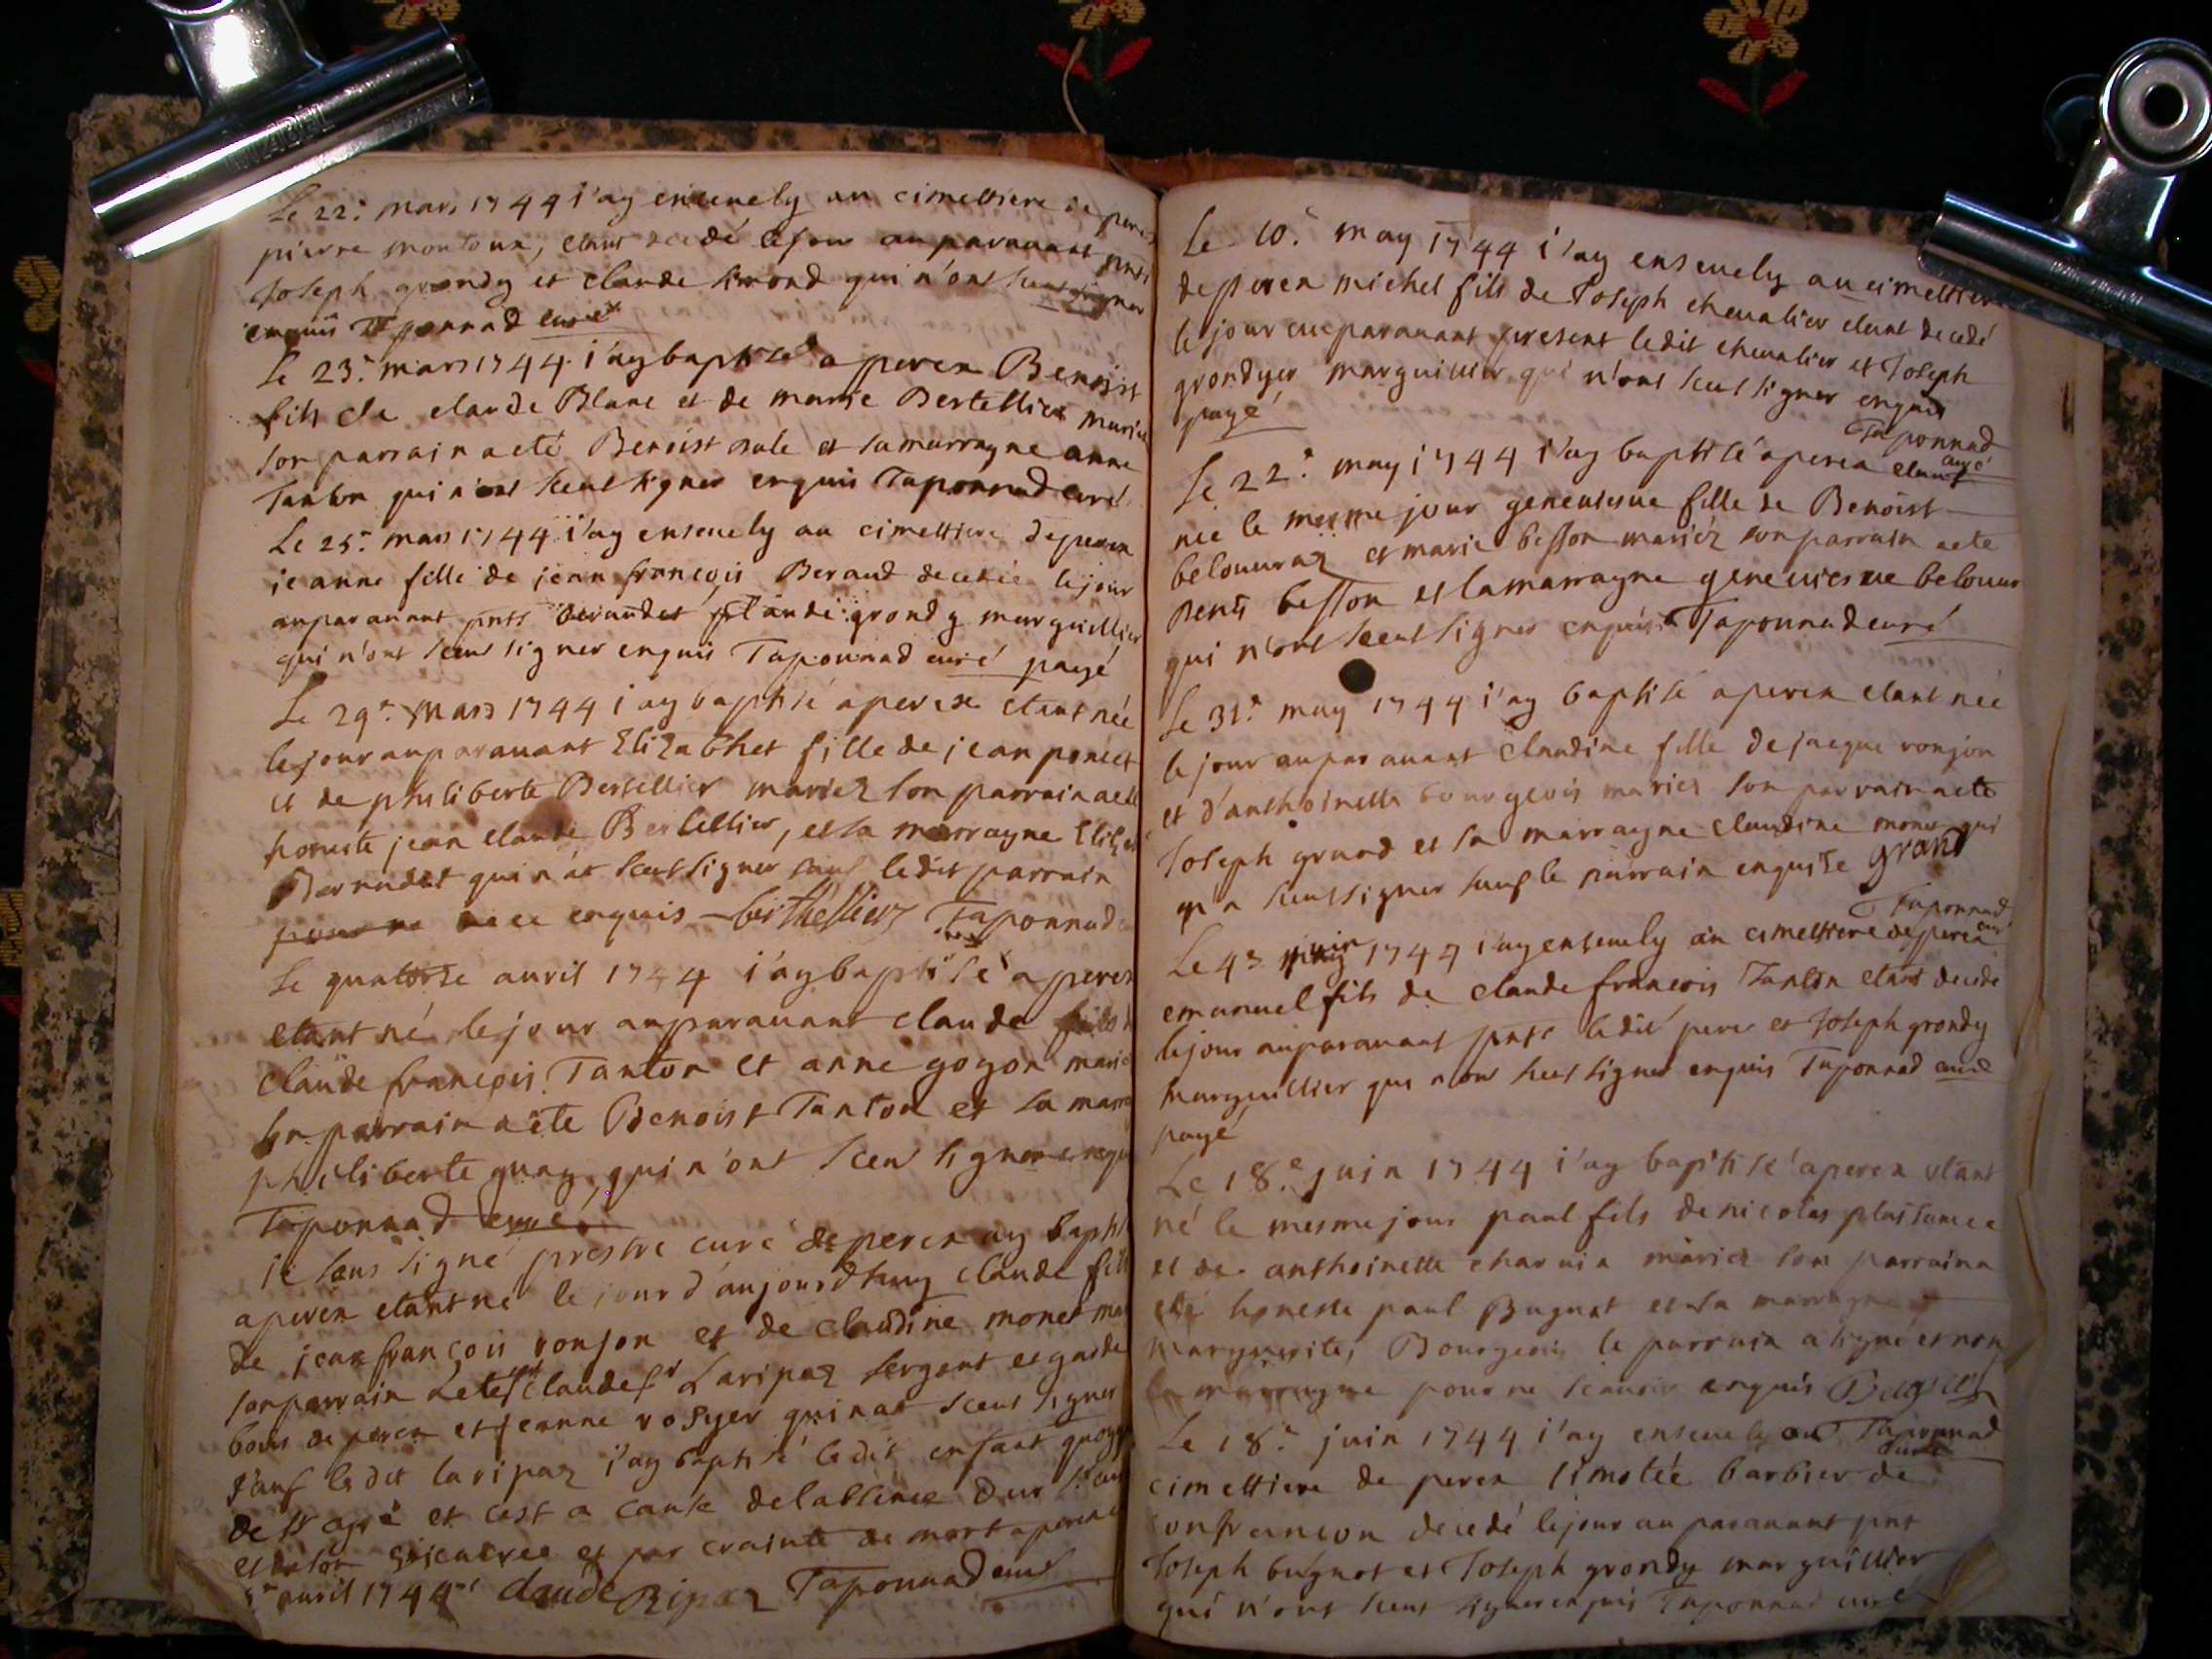 Le 22.e mars 1744 i'ay enseuely au cimettiere de perex
pierre montoux, etant decedé le jour auparauant pnts
Joseph grondy et claude simond qui n'ont sceut signer
enquis Taponnad curé
Le 23.e mars 1744 i'ay baptisé a perex Benoist
fils de claude Blanc et de marie Bertellier mariez
son parrain a eté Benoist sale et la marrayne anne
Tanton qui n'ont sceut signer enquis Taponnad curé
Le 25.e mars 1744 i'ay enseuely au cimettiere de perex
jeanne fille de jean françois Beraud decedée le jour
auparauant pnts beraud et claude grondy marguillier
qui n'ont sceu signer enquis Taponnad curé payé
Le 29.e Mars 1744 i'ay baptisé a perex etant née
le jour auparauant Elizabhet fille de jean poncet
et de philiberte Bertellier mariez son parrain a eté
honeste jean claude Bertellier, et la marrayne Eliz
Bernadet qui n'at sceut signer sauf ledit parrain
enquis berthellier Taponnad
Le quatorse auril 1744 i'ay baptisé a perex
etant né le jour auparauant claude fils
claude françois Tanton et anne gogon marie
son parrain a eté Benoist Tanton et la marra
philiberte guay, qui n'ont sceu signer enqui
Taponnad curé
je sous signé prestre curé de perex ay bapti
a perex etant né le jour d'aujourdhuy claude fils
de jean françois ronjon et de claudine monet mar
son parrain a eté claude Laripaz sergent et garde
bois de perex et jeanne rosyer qui nat sceut signer
sauf ledit laripaz i'ay baptisé ledit enfant quoy
de et cest a cause de labsence
et par crainte de mort a perex
auril 1744 claude Ripaz Taponnad curé
Le 10.e may 1744 i'ay enseuely au cimettiere
de perex michel fils de Joseph cheualier etant decedé
le jour auparauant present ledit cheualier et Joseph
grondyer marguillier qui n'ont sceut signer enquis
payé Taponnad
curé
Le 22.e may 1744 i'ay baptisé a perex etant
née le mesme jour geneuiesue fille de Benoist
belouuraz et marie besson mariéz son parrain a eté
Denis besson et la marrayne geneuiesue belouur
qui n'ont sceut signer enquis Taponnad curé
Le 31.e may 1744 i'ay baptisé a perex etant née
le jour auparauant claudine fille de jacque ronjon
et d'anthoinette bourgeois mariez son parrain a eté
Joseph grand et sa marrayne claudine monet qui
n'a sceut signer sauf le parrain enquise grand
Taponnad
curé
Le 4.e juin 1744 i'ay enseuely au cimettiere de perex
emanuel fils de claude françois Tanton etant decede
le jour auparauant pnts ledit pere et Joseph grondy
marguillier qui n'ont sceut signer enquis Taponnad curé
payé
Le 18.e juin 1744 i'ay baptisé a perex etant
né le mesme jour paul fils de nicolas plaisance
et de anthoinette charuin mariez son parrain a
eté honeste paul Bugnot et sa marrayne
marguerite Bourgeois le parrain a signé et non
la marrayne pour ne scauoir enquis Bugnot
Le 18.e juin 1744 i'ay enseuely au Taponnad
curé
cimettiere de perex timotée barbier de
confrancon decedé le jour auparauant pnt
Joseph bugnot et Joseph grondy marguillier
qui n'ont sceut signer enquis Taponnad curé